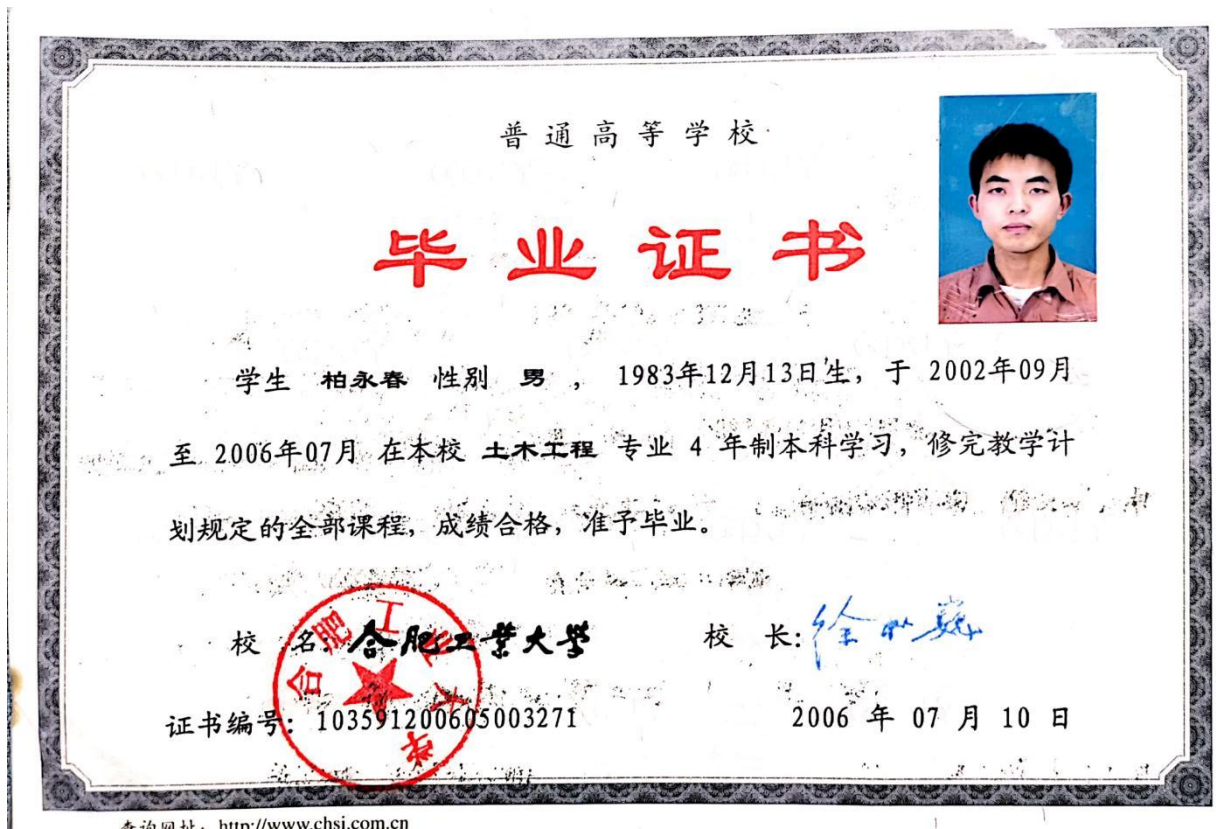 普通高等学校
毕业证书
学生 柏永春 性别 男 ， 1983年12月13日生，于 2002年09月
至 2006年07月 在本校 土木工程 专业 4 年制本科学习，修完教学计
划规定的全部课程，成绩合格，准予毕业。
校 名：合肥工业大学 校 长：
合肥工业大学
证书编号：103591200605003271 2006 年 07 月 10 日
查询网址：http://www.chsi.com.cn